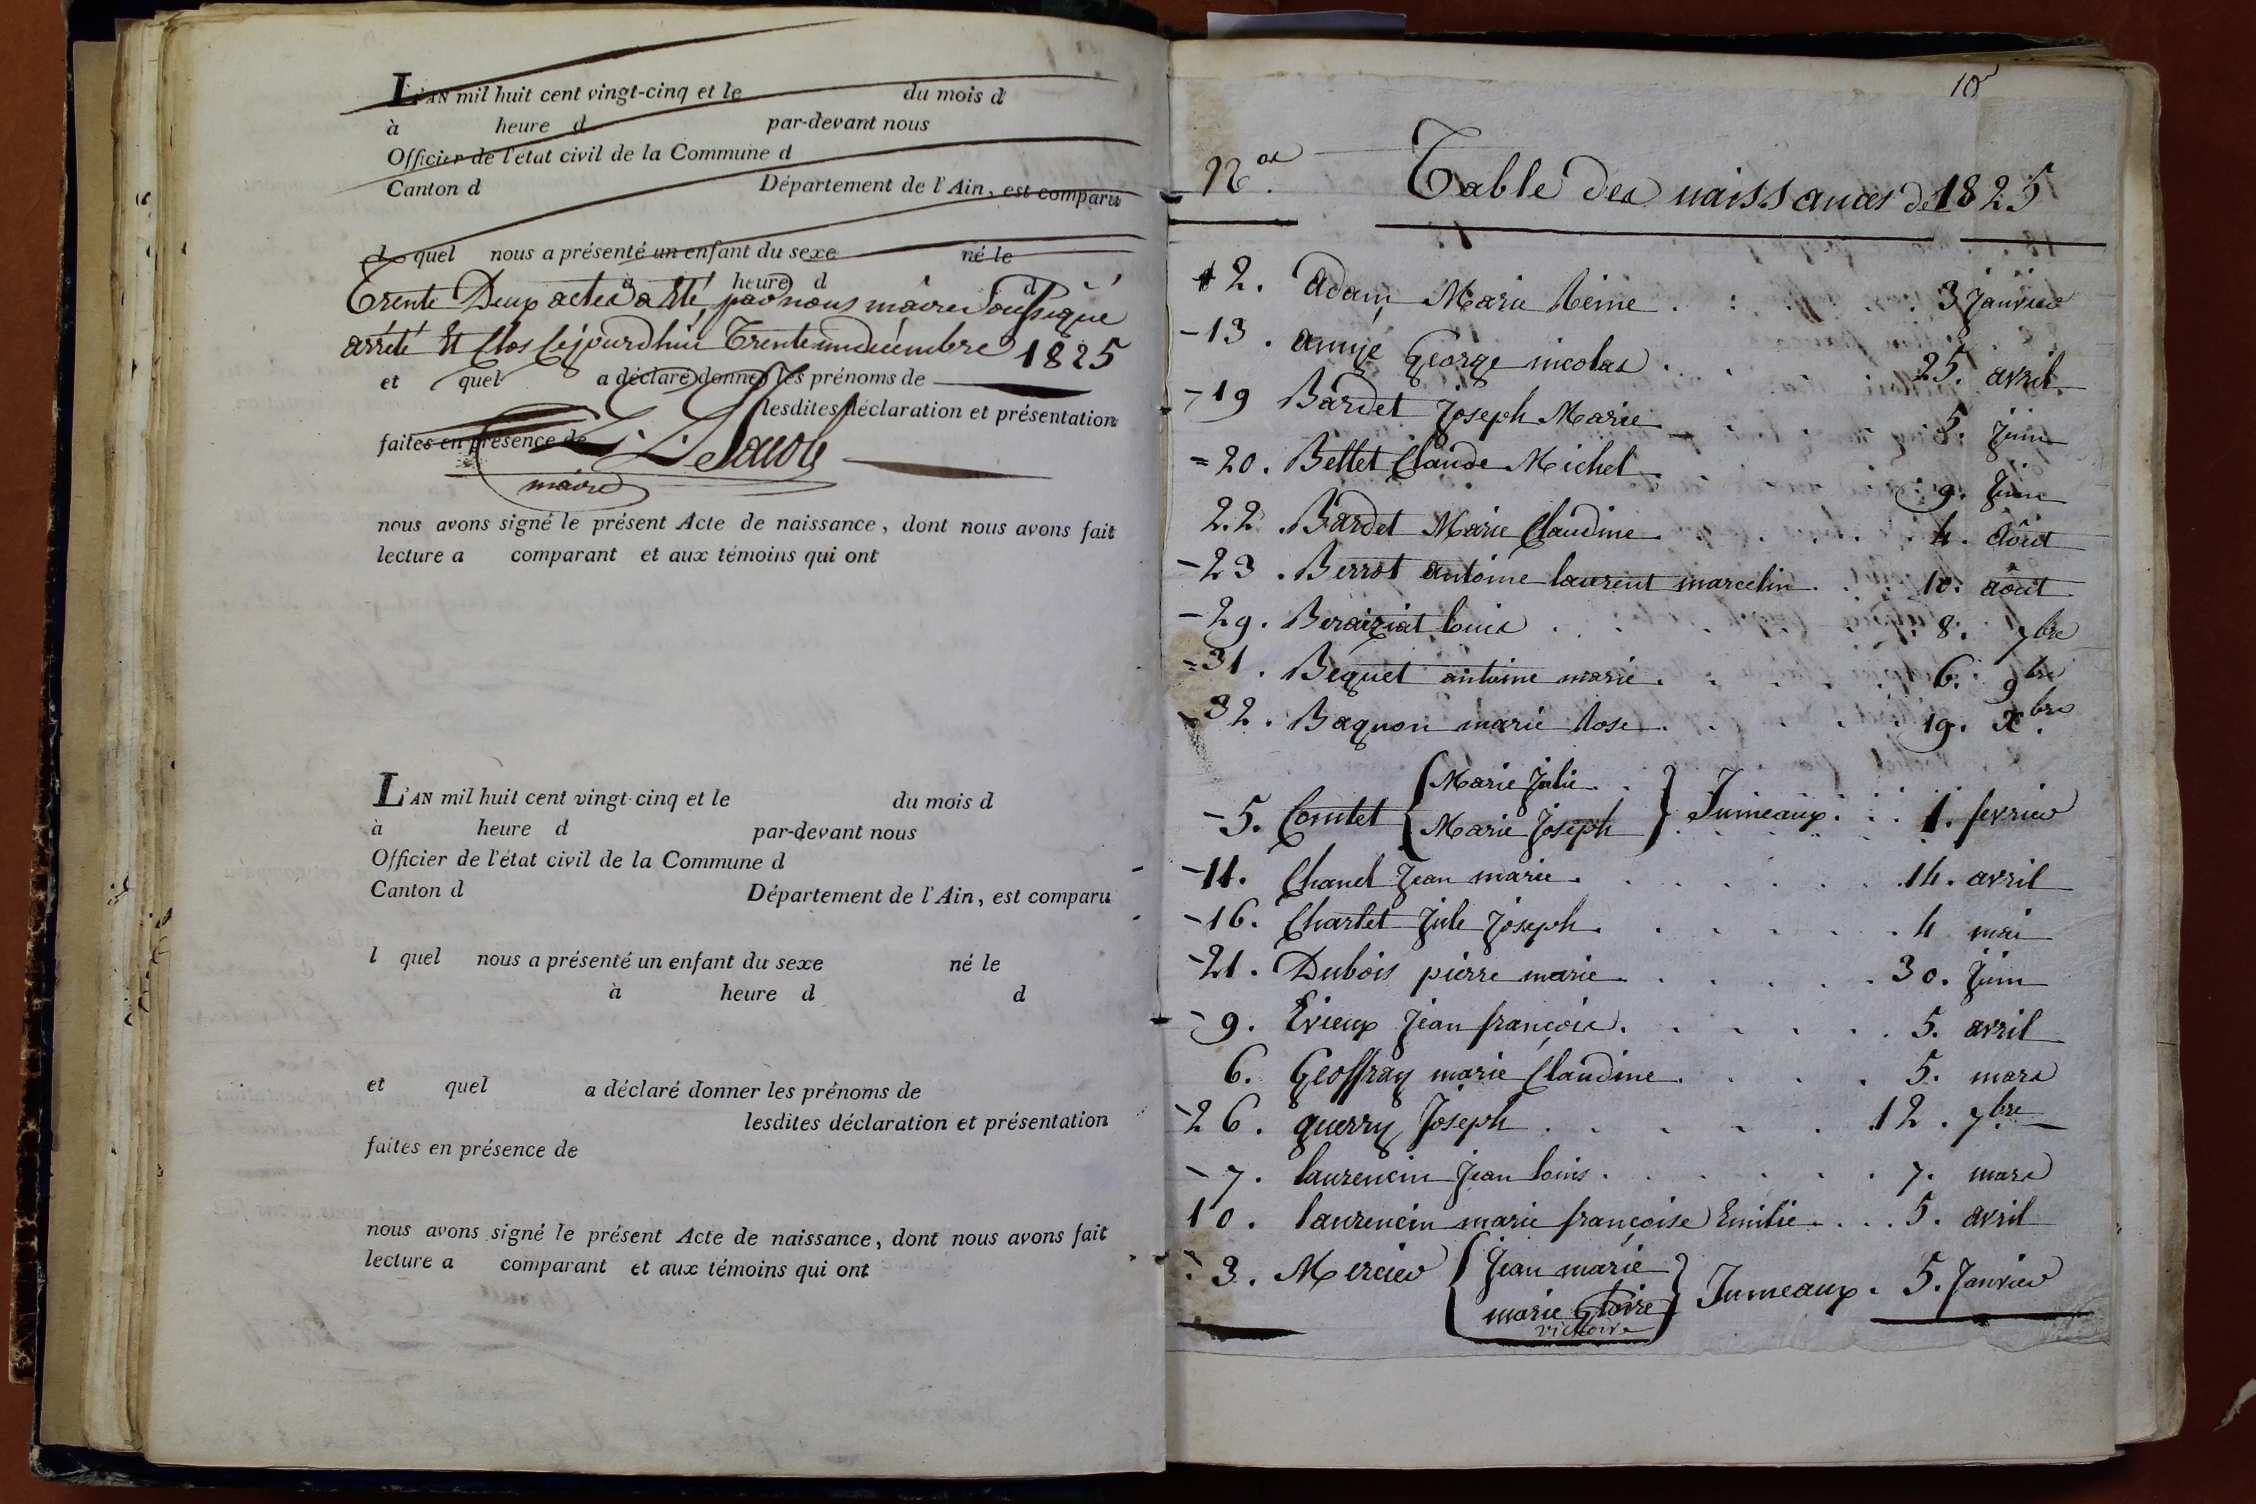 L'AN mil huit cent vingt-cinq et le du mois d
à heure d par-devant nous
Officier de l'état civil de la Commune d
Canton d Département de l'Ain, est comparu
l quel nous a présenté un enfant du sexe né le
à heure d d
Trente Deux actes a Eté, par nous maire Soussigné
arrêté Et Clos Cejourdhui Trente un décembre 1825
et quel a déclaré donner les prénoms de
lesdites déclaration et présentation
faites en présence de
maire
nous avons signé le présent Acte de naissance, dont nous avons fait
lecture a comparant et aux témoins qui ont
L'AN mil huit cent vingt-cinq et le du mois d
à heure d par-devant nous
Officier de l'état civil de la Commune d
Canton d Département de l'Ain, est comparu
l quel nous a présenté un enfant du sexe né le
à heure d d
et quel a déclaré donner les prénoms de
lesdites déclaration et présentation
faites en présence de
nous avons signé le présent Acte de naissance, dont nous avons fait
lecture a comparant et aux témoins qui ont
Nos. Table des naissances de 1825
2. Adam Marie Reine 3 Janvier
13. George nicolas 25. avril
19 Bardet Joseph Marie 5. Juin
20. Bellet Claude Michel 9. Juin
22. Bardet Marie Claudine 4. Août
23. Berrot antoine laurent marcelin 10. août
29. Beraiziat louis 8. 7bre
31. Bequet antoine marie 6. 9bre
32. Baquon marie Rose 19. Xbre
Marie Julie
5. Comtet Jumeaux 1. fevrier
Marie Joseph
11. Chanel Jean marie 14. avril
16. Charlet Jule Joseph 4 mai
21. Dubois pierre marie 30. Juin
9. Evieux Jean françois 5. avril
6. Geoffray marie Claudine 5. mars
26. guerry Joseph 12. 7bre
7. laurencin Jean louis 7. mars
10. laurencin marie françoise Emilie 5. avril
3. Mercier Jean marie Jumeaux. 5. Janvier
marie Gloire
victoire